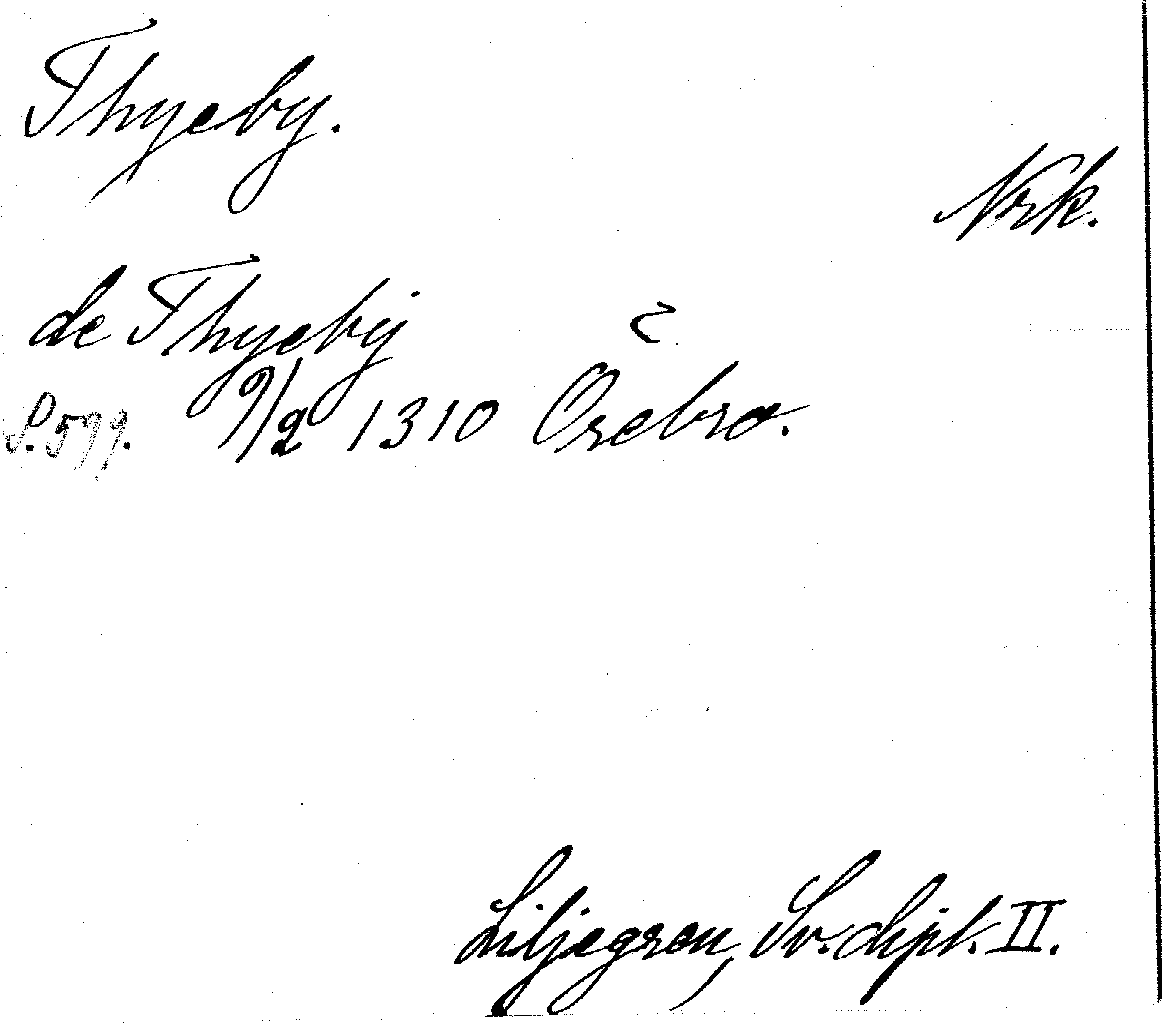 Thyeby.
Nrk.
de Thyebÿ
S. 599. 9/2 1310 Örebro.
Liljegren, Sv. dipl. II.